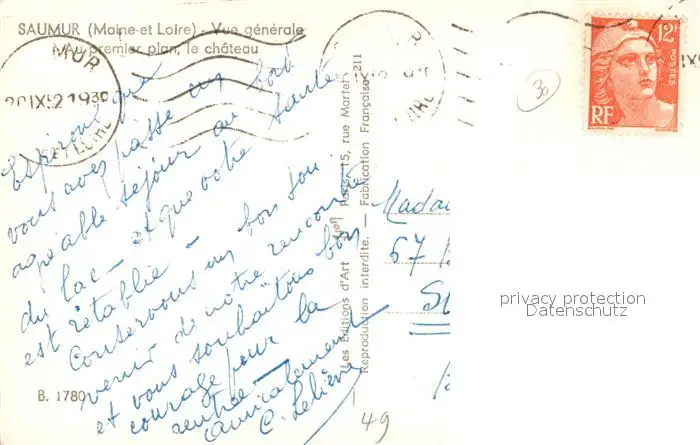 SAUMUR (Maine-et Loire) - Vue générale
Au premier plan, le château
MUR
1930
12F
POSTES
RF
30
Espérons que
vous avez passé un fort
agréable séjour au
du lac - et que votre santé
est rétablie -
Conservons un bon sou
venir de notre rencontre
et vous souhaitons bon
courage pour la
rentrée -
Amicalement
C. Lelièvre
B. 1780
Les Editions d'Art Paris, 15, rue Martel
Reproduction interdite. — Fabrication Française
211
Mada
67
privacy protection
Datenschutz
49